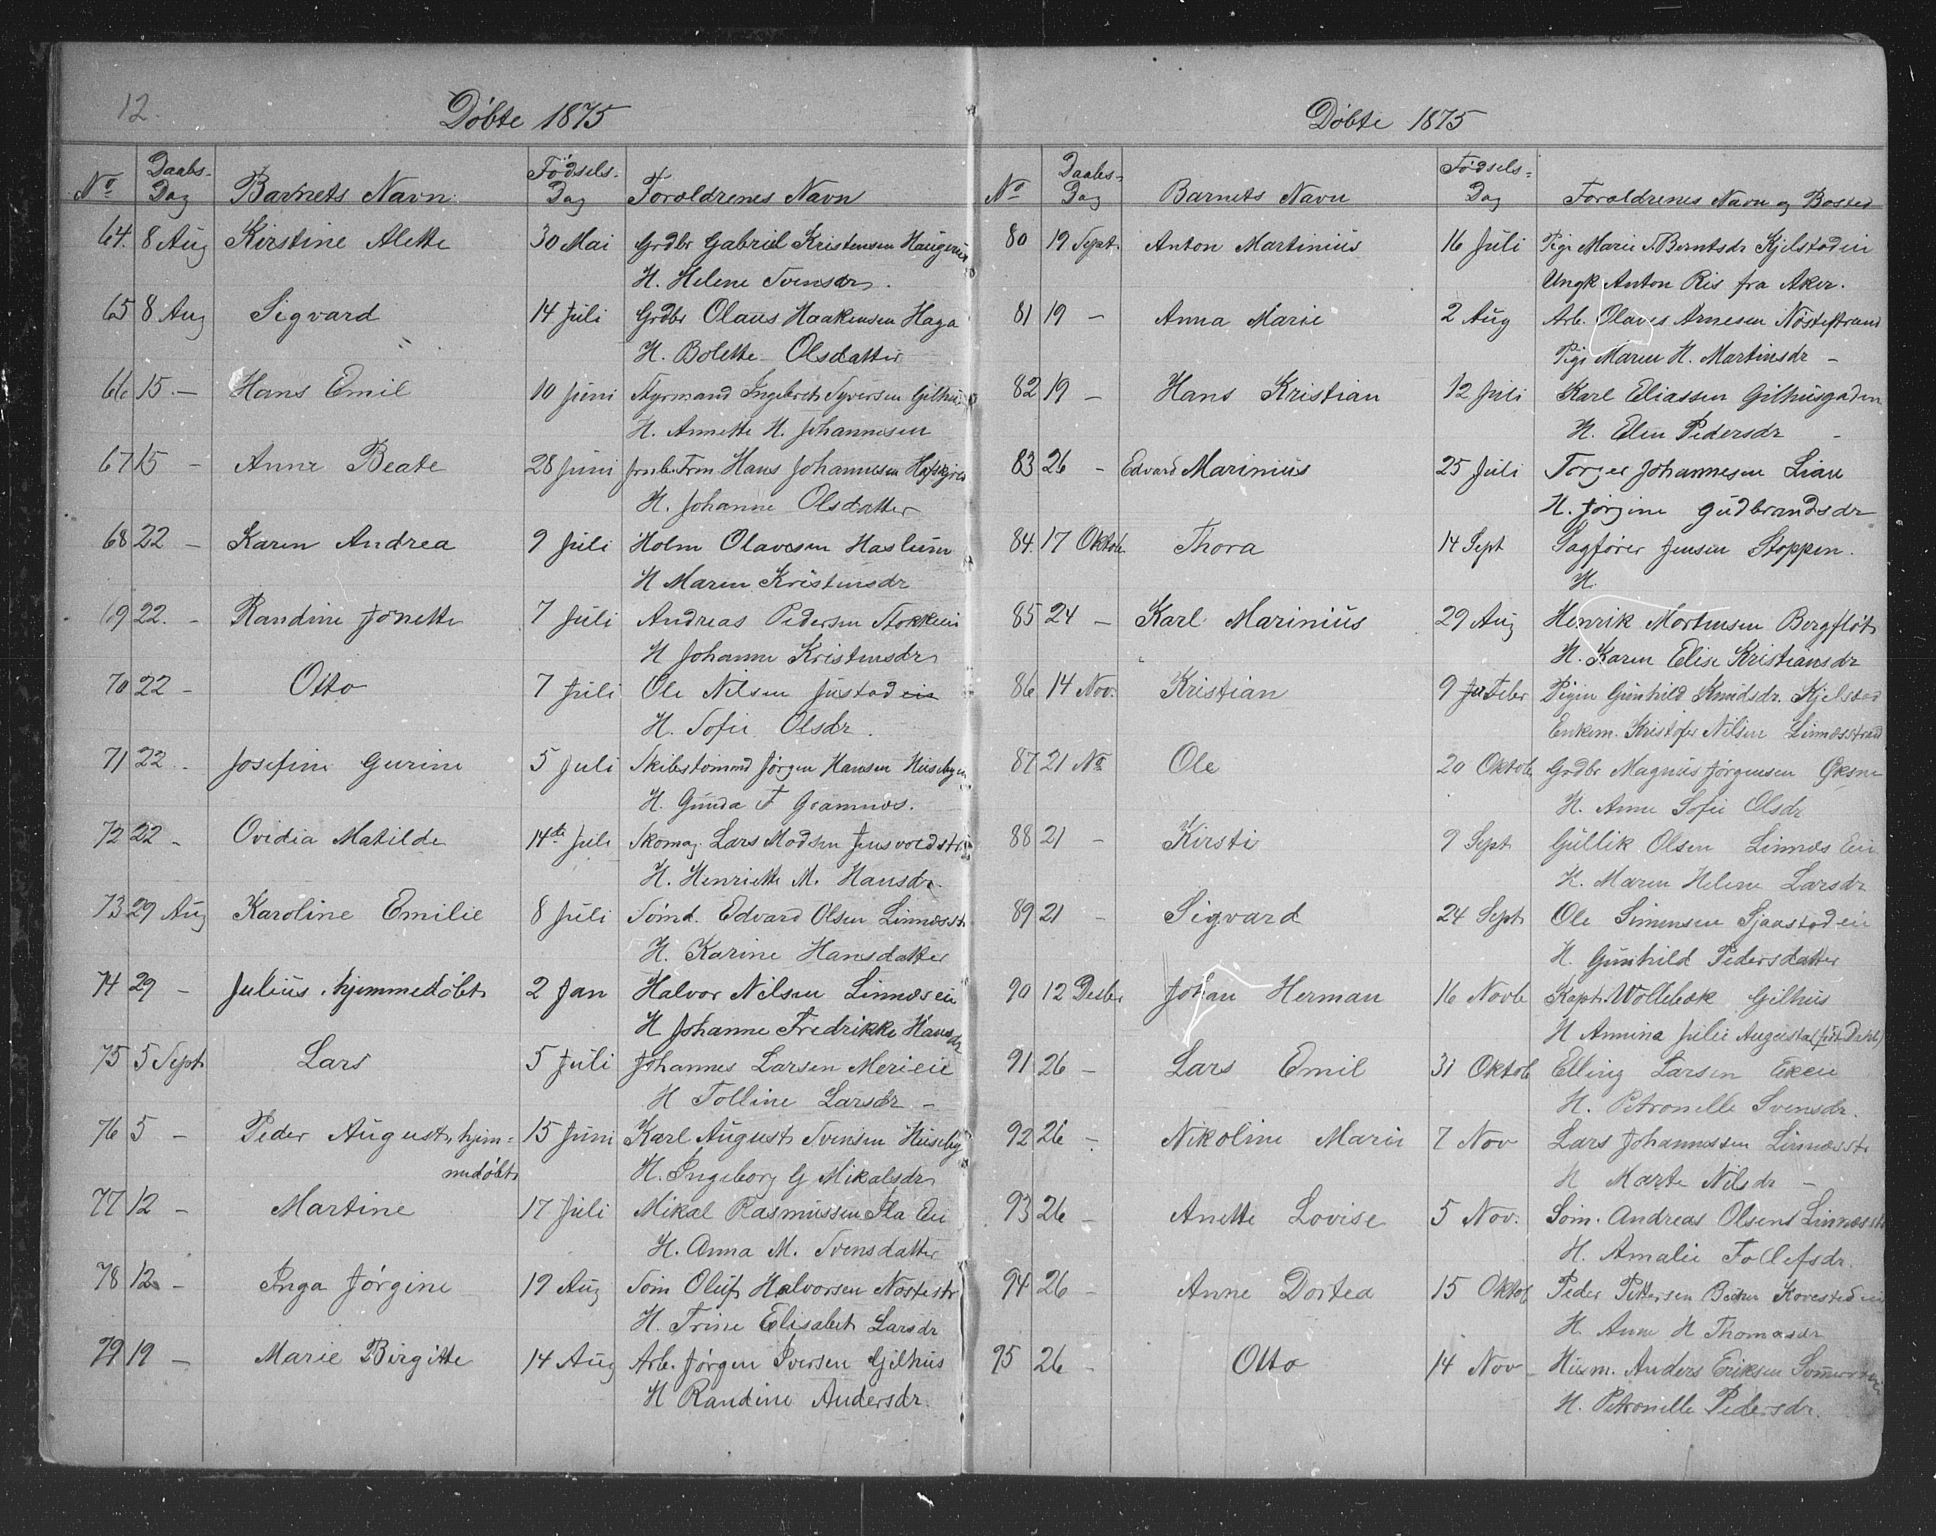 12.
Döbte 1875
No Daabs-Dag Barnets Navn Födsels-Dag Forældrenes Navn
64. 8 Aug Kirstine Alette 30 Mai Grdbr Gabriel Kristensen
H. Helene Svensdr.
65 8 Aug Sigvard 14 Juli Grdbr Olaus Haakensen Haga
H. Bolette Olsdatter
66 15 — Hans Emil 10 Juni Styrmand Ingebret Syversen Gilhus
H. Annette H. Johannesen
67 15 — Anne Beate 28 Juni Hans Johannesen
H. Johanne Olsdatter
68 22 — Karen Andrea 9 Juli Holm Olavesen Haslum
H Maren Kristensdr
69 22. — Randine Jonette 7 Juli Andreas Pedersen Stokkeie
H Johanne Kristensdr
70 22 — Otto 7 Juli Ole Nilsen Justad
H. Sofie Olsdr.
71 22 — Josefine Gurine 5 Juli Skibstömmd Jörgen Hansen
H. Gunda F Gramnæs.
72 22 — Ovidia Matilde 14de Juli Skomag. Lars Madsen
H. Henriette M. Hansdr.
73 29 Aug Karoline Emilie 8 Juli Sömd. Edvard Olsen Linnæsstr
H. Karine Hansdatter
74 29 — Julius, hjemmedöbt 2 Jan Halvor Nilsen Linnæseie
H Johanne Fredrikke Hansdr
75 5 Sept Lars 5 Juli Johannes Larsen Merieie
H Tolline Larsdr —
76 5 — Peder August, hjem= 15 Juni Karl August Svensen Huseby
medöbt H. Ingeborg G Mikalsdr
77 12 — Martine 17 Juli Mikal Rasmussen Eie
H. Anna M. Svensdatter
78 12 — Inga Jørgine 19 Aug Söm Oluf Halvorsen Nöstestr
H. Trine Elisabet Larsdr
79 19 — Marie Birgitte 14 Aug Arb. Jørgen Iversen Gilhus
H Randine Andersdr.
Döbte 1875
No Daabs-Dag Barnets Navn Födsels-Dag Forældrenes Navn og Bosted
80 19 Sept. Anton Martinius 16 Juli Pige Marie Berntsdr Kjelstadeie
Ungk Anton Ris fra Aker.
81 19 — Anna Marie 2 Aug Arb. Olaves Arnesen Nöstestrand
Pige Maren H. Martinsdr —
82 19 — Hans Kristian 12 Juli Karl Eliassen Gilhusgaden
H. Elen Pedersdr —
83 26 — Edvard Marinius 25 Juli Torger Johannesen Lian
H. Jørgine Gudbrandsdr
84. 17 Oktob Thora 14 Sept Sagfører Jensen Stoppen.
H.
85 24 — Karl Marinius 29 Aug Henrik Mortensen Bergflöt
H. Karen Elise Kristiansdr
86 14 Nov. Kristian 9 Feber Pigen Gunhild Knudsdr. Kjelstad
Enkem. Kristofer Nilsen Linnæsstrand
87 21 No Ole 20 Oktob Grdbr Magnus Jørgensen
H. Anne Sofie Olsdr
88 21 — Kirsti 9 Sept Gullik Olsen Linnæs Eie
H. Maren Helene Larsdr
89 21 — Sigvard 24 Sept Ole Simensen Sjaastadeie
H. Gunhild Pedersdatter
90 12 Desbr Johan Herman 16 Novb Kapt. Wollebæk Gilhus
H Annina Julie Augusta (födt Dahl)
91 26 — Lars Emil 31 Oktob Elling Larsen
H. Petronelle Svensdr.
92 26 — Nikoline Marie 7 Nov Lars Johannessen Linnæsstr
H Marte Nilsdr —
93 26 — Anette Lovise 5 Nov. Söm. Andreas Olsens Linnæsstr
H. Amalie Tollefsdr.
94 26 — Anne Dortea 15 Oktob Peder Pettersen
H. Anne H Thomasdr
95 26 — Otto 14 Nov Husm. Anders Eriksen
H. Petronelle Pedersdr.